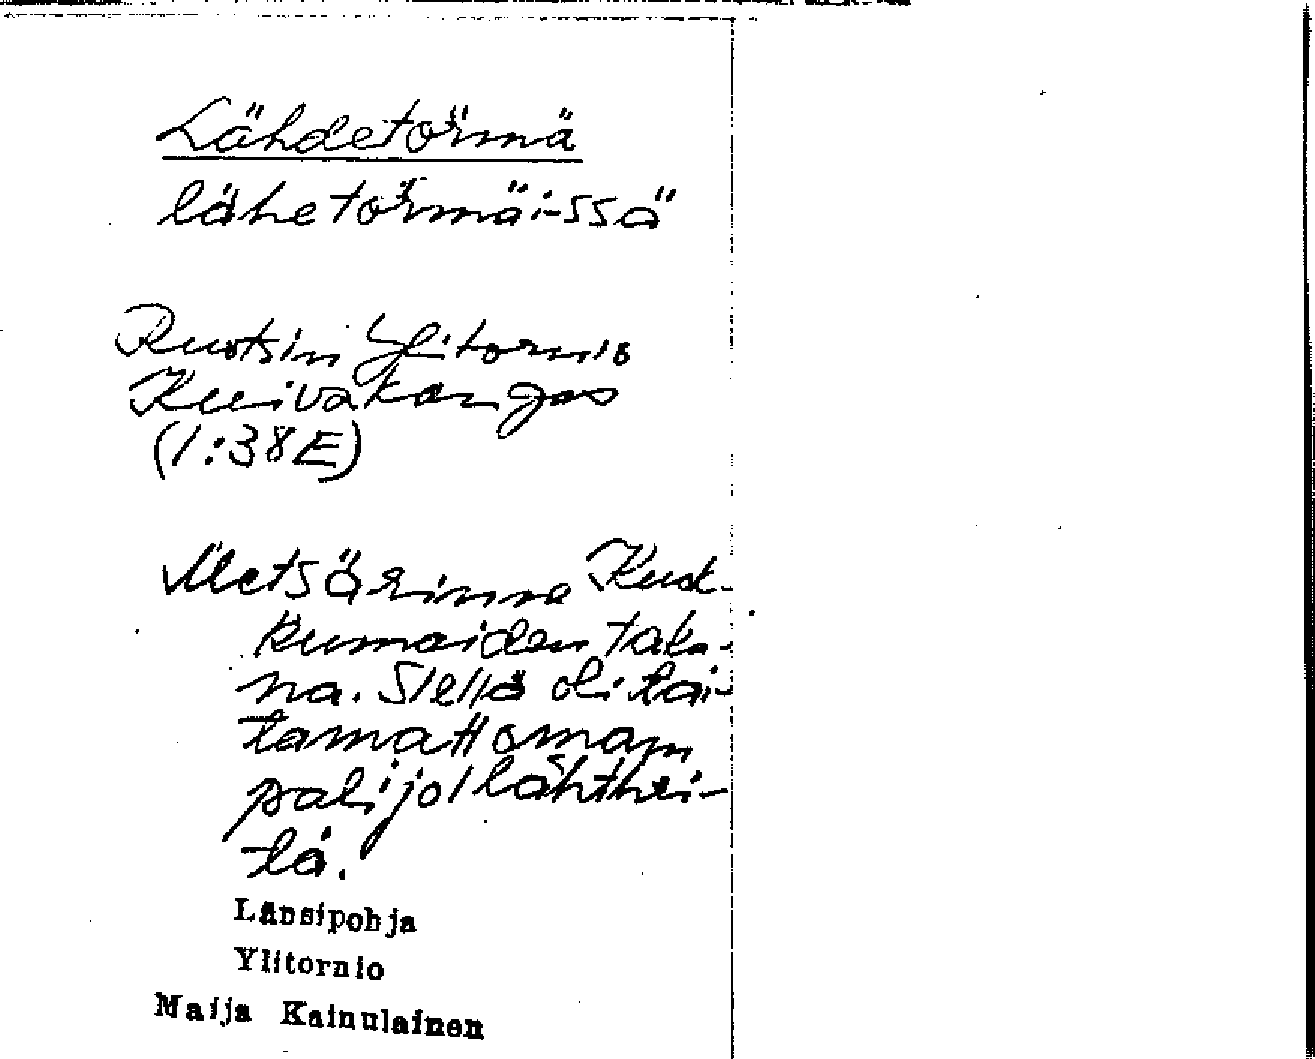 Lähdetörmä
lähetörmäi-ssä
Ruotsin Ylitornio
Kuivakangas
(1:38E)
Metsärinne Kuk-
kumaiden taka-
na. Siellä oli tai-
tamattomam
palijol lähthei-
tä.
Länsipohja
Ylitornio
Maija Kainulainen